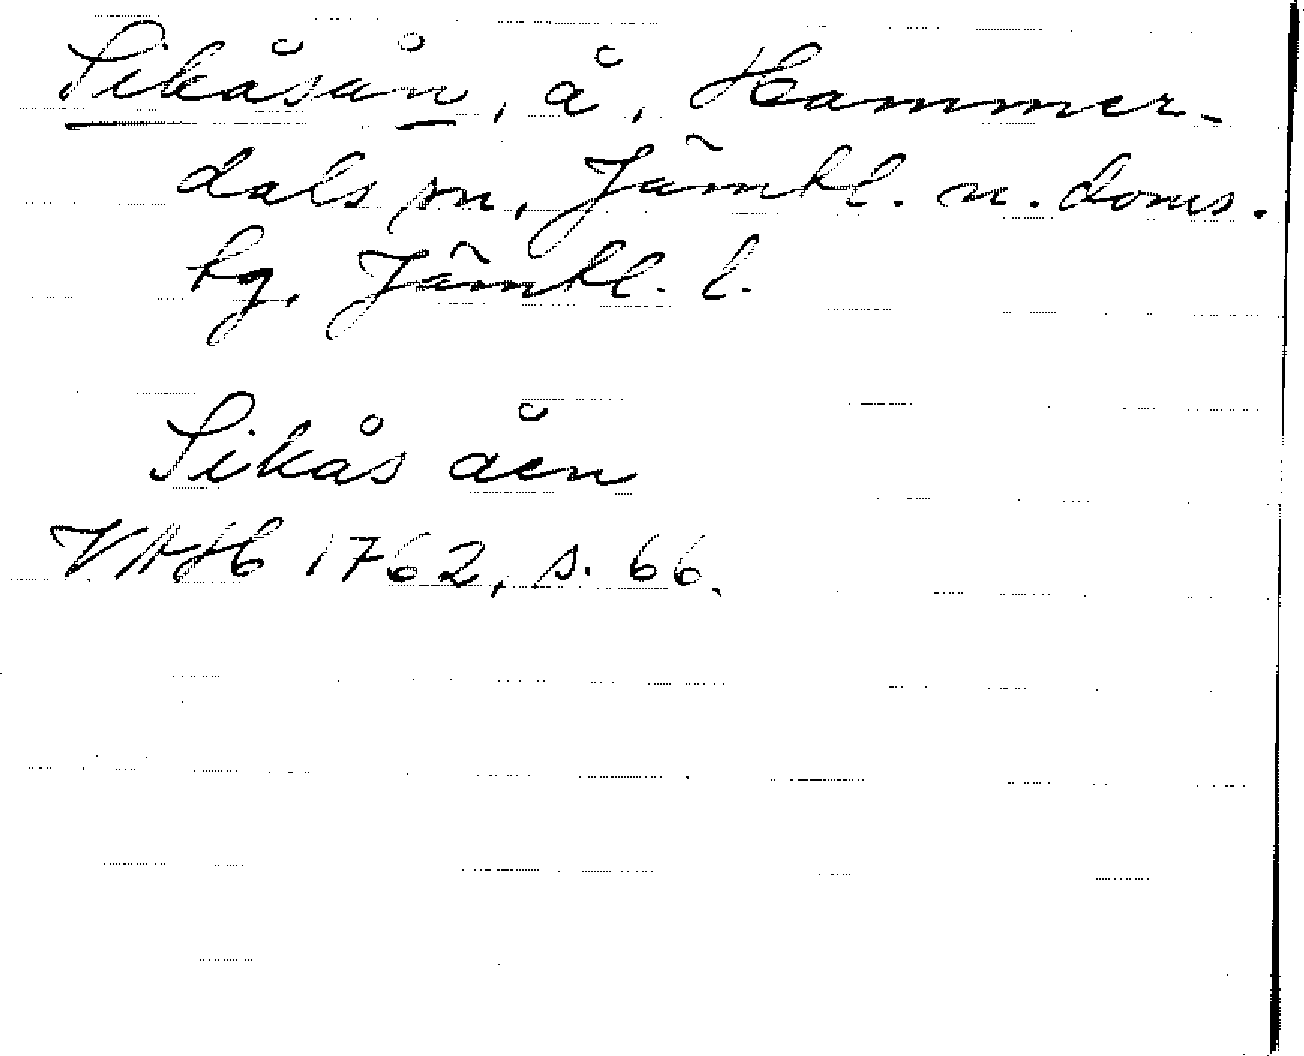 Sikåsån, å, Hammer-
dals sn, Jämtl. n. doms.
hg, Jämtl. l.
Sikås åen
VAH 1762, s. 66.